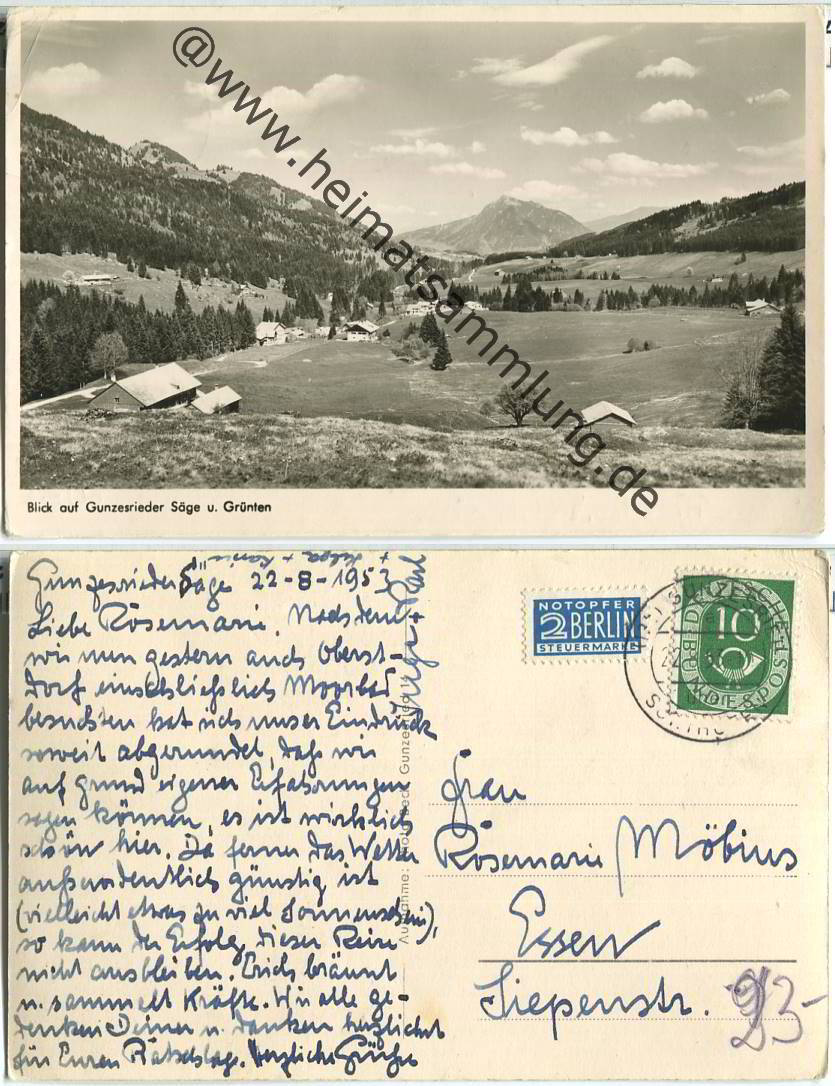 @www.heimatsammlung.de
Blick auf Gunzesrieder Säge u. Grünten
Gunzesrieder Säge 22-8-1953
Liebe Rosemarie. Nachdem
wir nun gestern auch Oberst-
dorf einschließlich Moorbad
besuchten hat sich unser Eindruck
soweit abgerundet, daß wir
auf grund eigener Erfahrungen
sagen können, es ist wirklich
schön hier. Da ferner das Wetter
außerordentlich günstig ist
(vielleicht etwas zu viel Sonnenschein),
so kann der Erfolg dieser Reise
nicht ausbleiben. Erich bräunt
u. sammelt Kräfte. Wir alle ge-
denken Deiner u. danken herzlichst
für Euren Ratschlage. Herzliche Grüße
+ Helga +
Aufnahme: Gunzesried
NOTOPFER
2 BERLIN
STEUERMARKE
DEUTSCHE
BUNDESPOST
10
Frau
Rosemarie Möbius
Essen
Siepenstr. 23